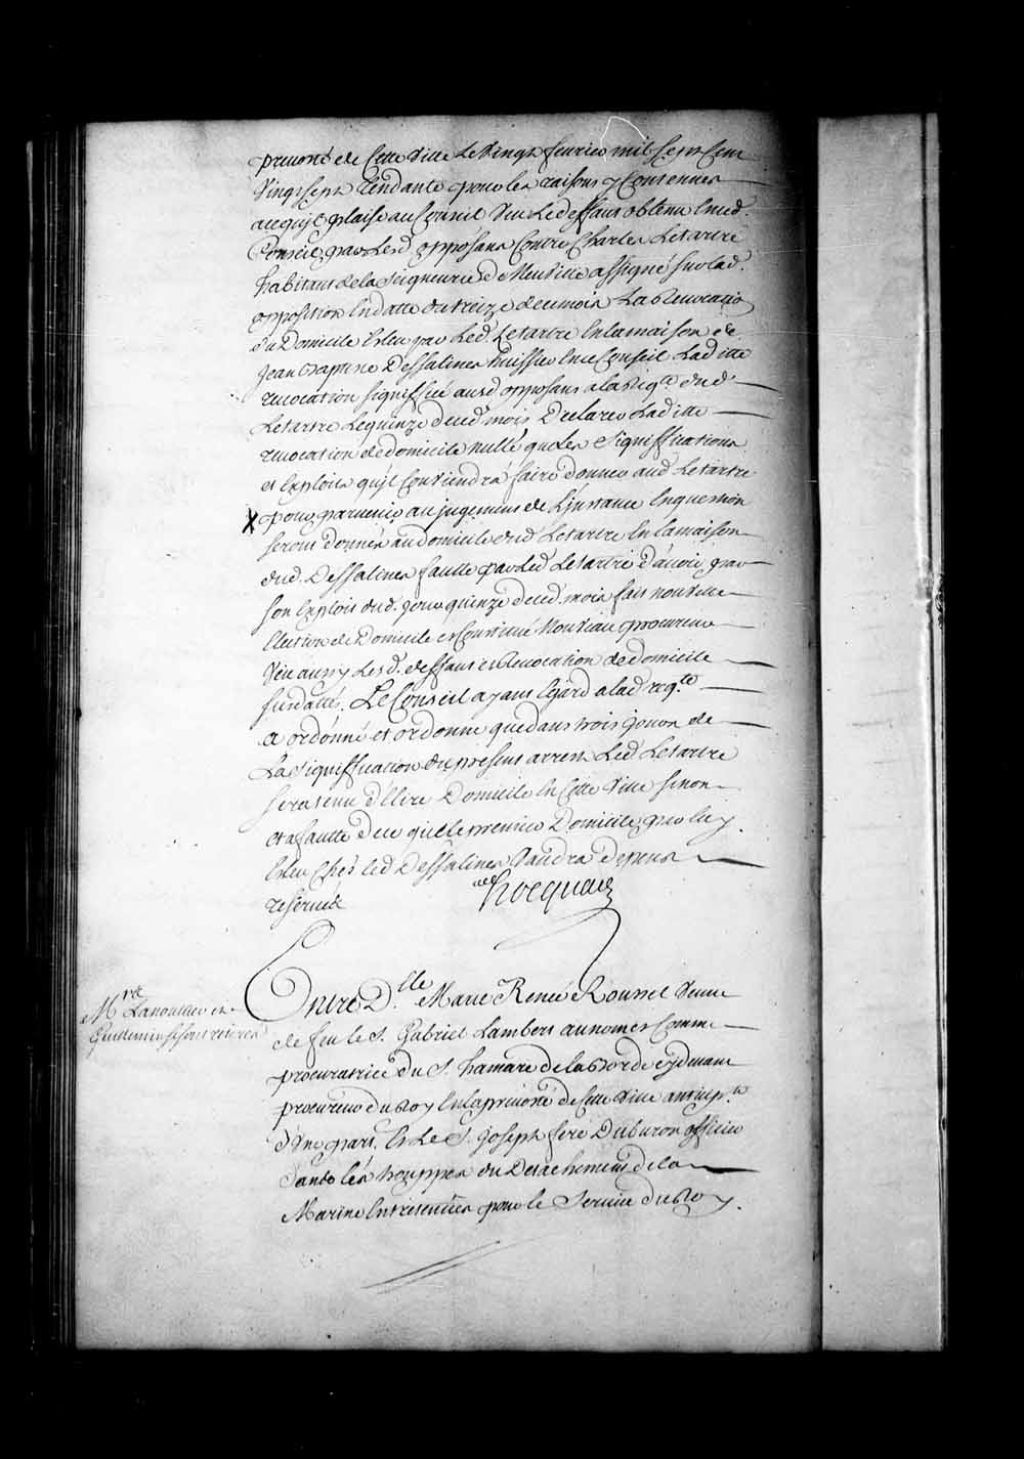 prevosté de Cette Ville Le Vingt fevrier mil Sept Cent
Vingt Sept tendante pour les raisons y Contenues
a ce qu'il plaise au Conseil Veu Le deffaut obtenu En ce d.
Conseil par Led. opposant Contre Charles Letartre
habitant de la Seigneurie de Neuville assigné sur lad.
opposition En datte du treize de ce mois La Revocation
du Domicile Esleu par Led. Letartre En la maison de
Jean Baptiste Dessalines huissier En ce Conseil Laditte
revocation signiffiée aud. opposant a la Reqte dud.
Letartre Le quinze de ced. mois Declarer Laditte
revocation de domicile nulle que Les Signiffications
et Exploits qu'il Conviendra faire donner aud. Letartre
X pour parvenir au jugement de L'instance En question
seront donnés au domicile dud. Letartre En la maison
dud. Dessalines faulte par Led. Letartre d'avoir par
son Exploit dud. jour quinze de ced. mois fait nouvelle
Election de Domicile et Constitué Nouveau procureur
Veu aussy Lesd. deffaut et Revocation de domicile
susdattés. Le Conseil ayant Egard a lad. reqte
a ordonné et ordonne que dans trois jours de
La Signiffication du present arrest Led. Letartre
sera tenu d'Elire Domicile En Cette Ville sinon
et a faulte de ce que Le premier Domicile par luy
Esleu Chés led. Dessalines Vaudra depens
reservés
Hocquart
Entre Dlle Marie Reneé Roussel Veuve
de feu le S. Gabriel Lambert au nom et Comme
Mre Lanoullier et
Guillemin se sont retirés
procuratrice du S. hamare de la Borde Cydevant
procureur du Roy En la prevosté de Cette Ville
d'Une part, Et Le S. Joseph feré Duburon officier
dans les trouppes du Detachement de la
Marine Entretenües pour le Service du Roy.